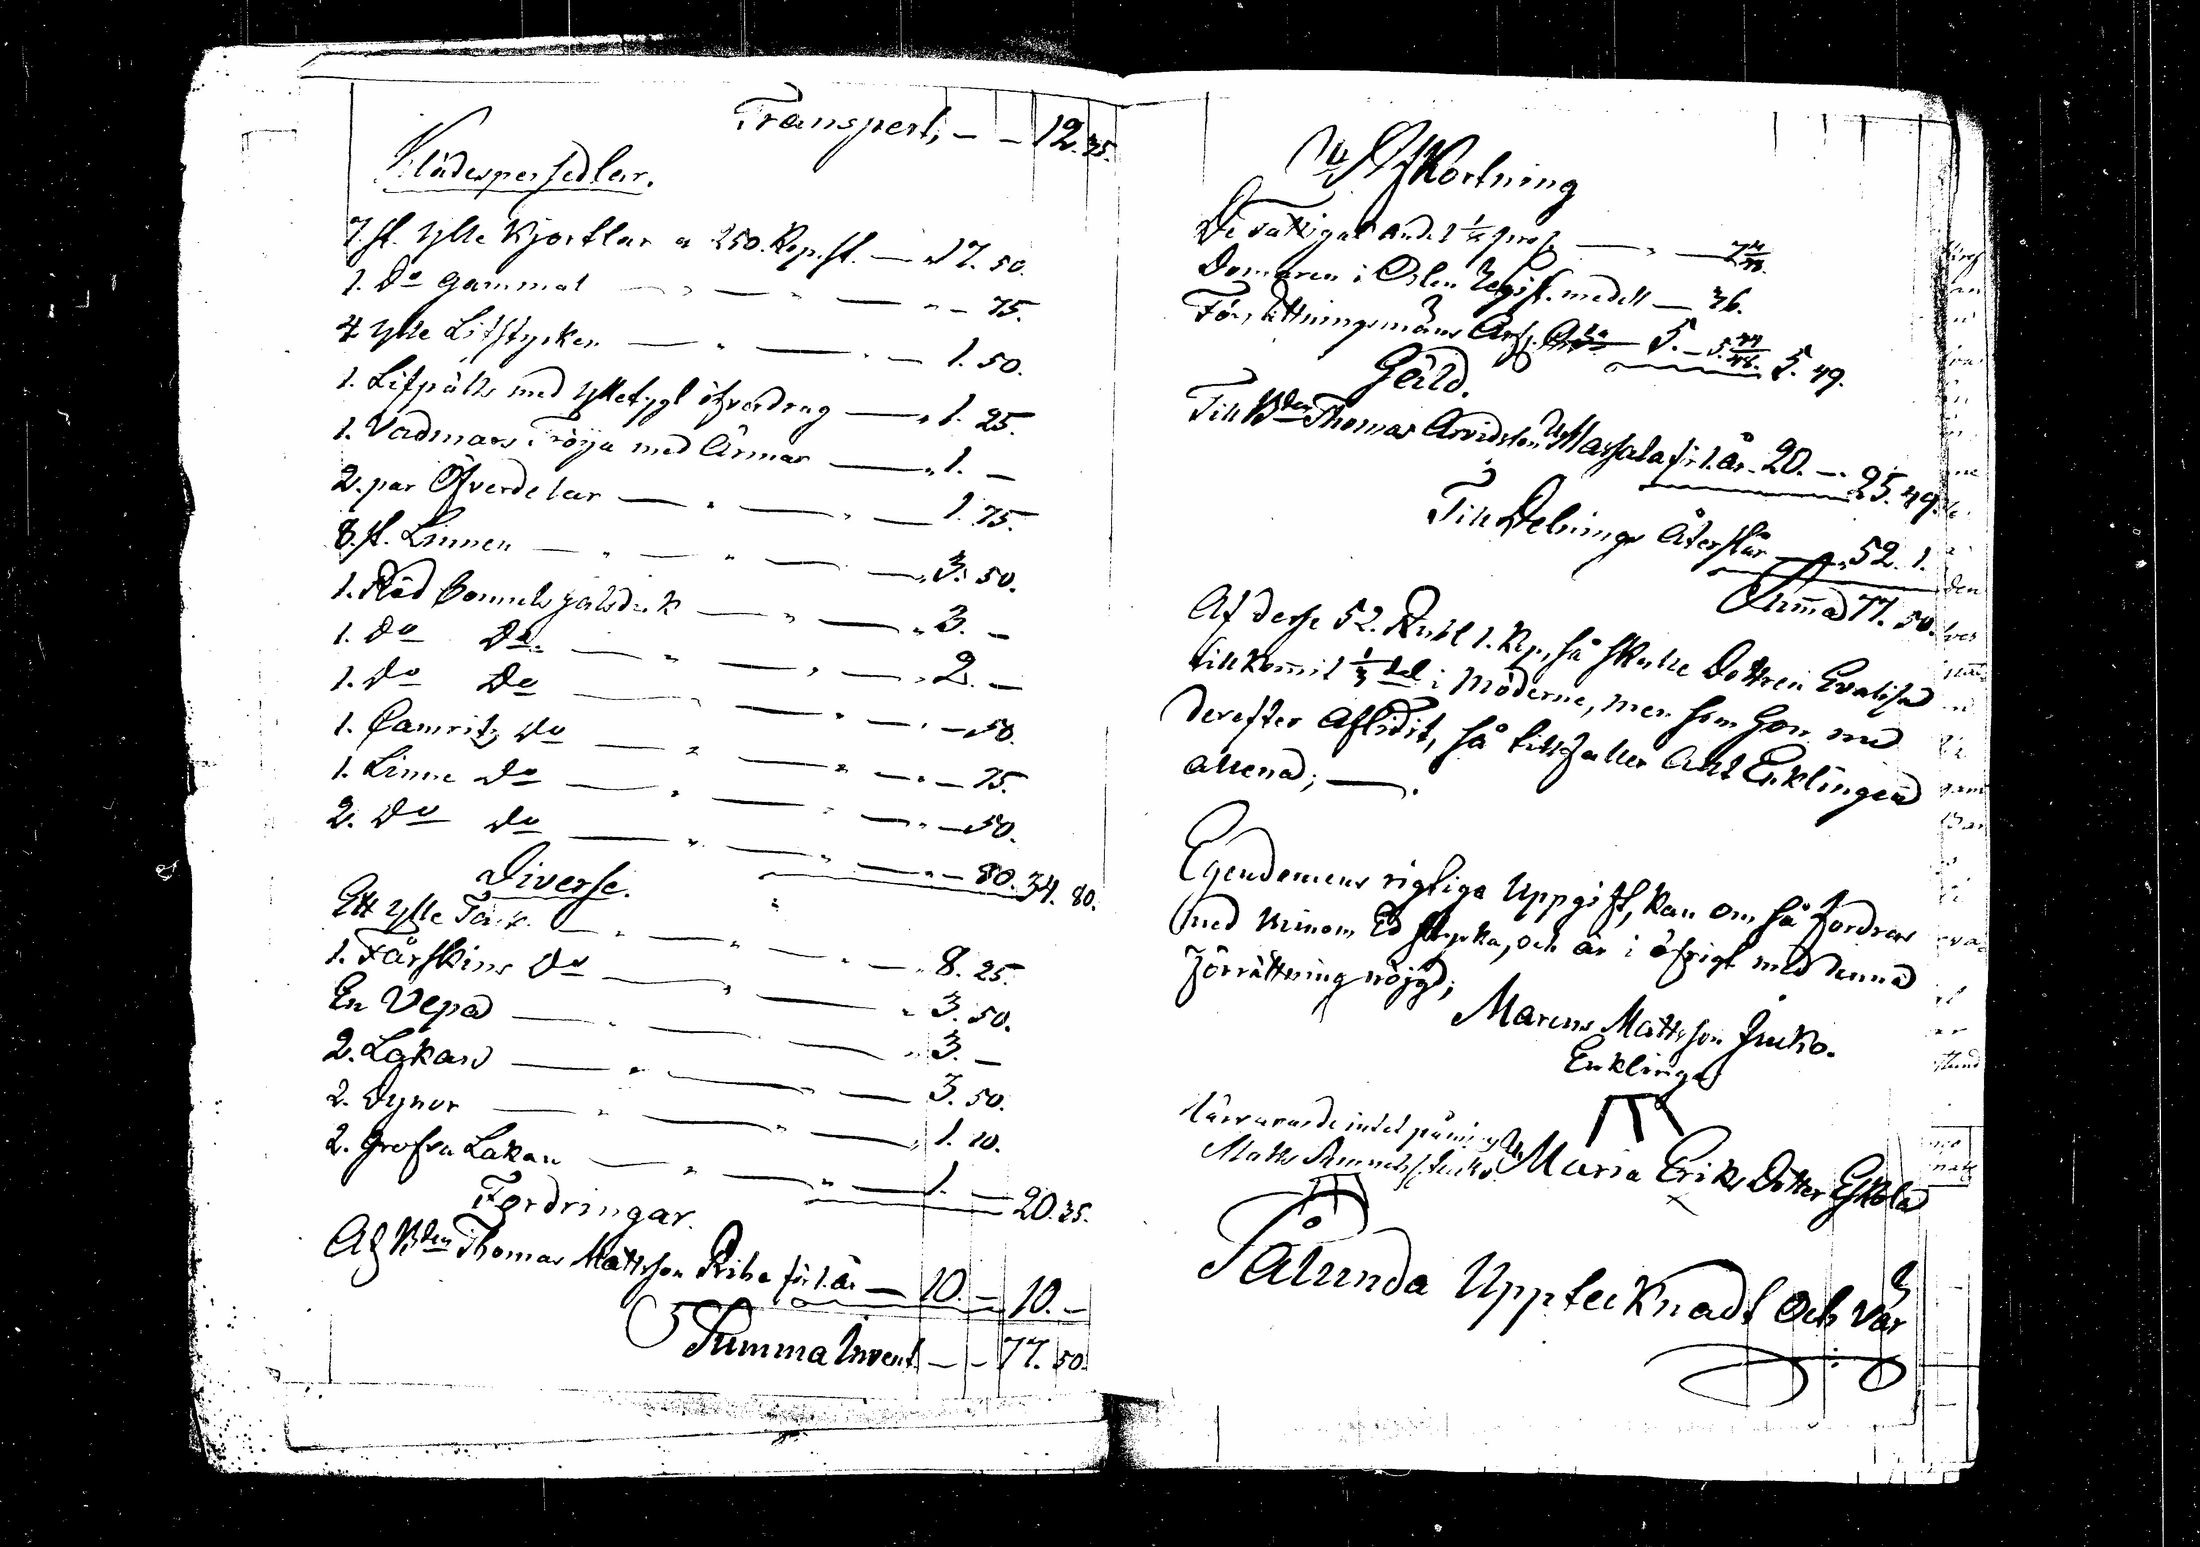 Transport, — — 12. 35.
Klädespersedlar.
7. st. Ylle Kjortlar a 250. Kop. st. — 17. 50.
1. Do gammal — — — 75.
4 Ylle Lifstycken — — 1. 50.
1. Lifpälts med Ylletygs öfverdrag — 1. 25.
1. Vadmars Tröija med Ärmar — 1. —
2. par Öfverdelar — — 1. 75.
8. st. Linnen — — — 3. 50.
1. Röd Bomuls halsduk — — 3. —
1. Do Do — — 2. —
1. Do Do — — 50.
1. Camrits Do — — 75.
1. Linne Do — — 50.
2. Do Do — — 80. 34. 80.
Diverse.
Ett Ylle Täcke — — 8. 25.
1. Fårskins Do — — 3. 50.
En Vepa — — 3. —
2. Lakan — — 3. 50.
2. Dynor — — 1. 10.
2. Grofva Lakan — — 1. — 20. 35.
Fordringar.
Af Bden Thomas Mattsson Riihe för l. år — 10. — 10. —
Summa Invent — — 77. 50.
Afkortning
De fattigas andel — —
Domaren i Orten Regist. medell — 36.
Förrättningsmäns Arf. 5. — 5. 44/48. 5. 49.
Gäld.
Till Bden Thomas Arvidsson för l. år. 20. — 25. 49.
Till Delnings Återstår — 52. 1.
Summa 77. 50.
Af desse 52. Rubl 1. Kop, så skulle Dottren Evalisa
tillkomit 1/3 del i Möderne, men som hon med
derefter Aflidit, så tillfaller Allt Enklingen
allena; —
Egendomens rigtiga Uppgift, kan om så fordras
med min Ed styrka, och är i öfrigt med denna
förrättning nöijd;
Marcus Mattsson Juko.
Enkling
Närvarande intet påmin
Matts Juko. Maria Eriks Dotter Eskola
Sålunda Upptecknadt Och Vär